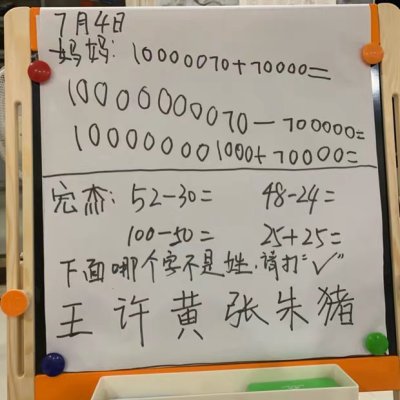 7月4日
妈妈：10000070+70000=
10000000070-700000=
100000001000+70000=
宏杰：52-30= 48-24=
100-50= 25+25=
下面哪个字不是姓，请打“✓”
王 许 黄 张 朱 猪